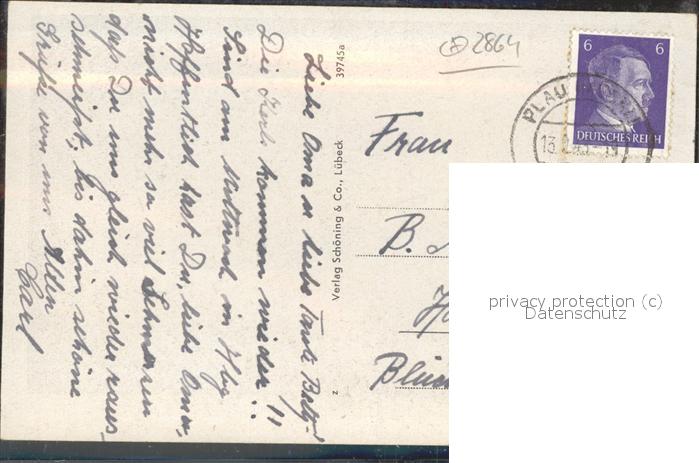 Liebe Oma u liebe Tante Betty!
Die Kerls kommen wieder!!
Sind am Mittwoch in Hbg
Hoffentlich hast Du, liebe Oma,
nicht mehr so viel Schmerzen
daß Du uns gleich wieder raus-
schmeißt, bis dahin schöne
Grüße von uns Allen
Carl
39745a
Verlag Schöning & Co., Lübeck
z
2864
6 6
DEUTSCHES REICH
PLAU
13
Frau
B.
Ha
privacy protection (c)
Datenschutz